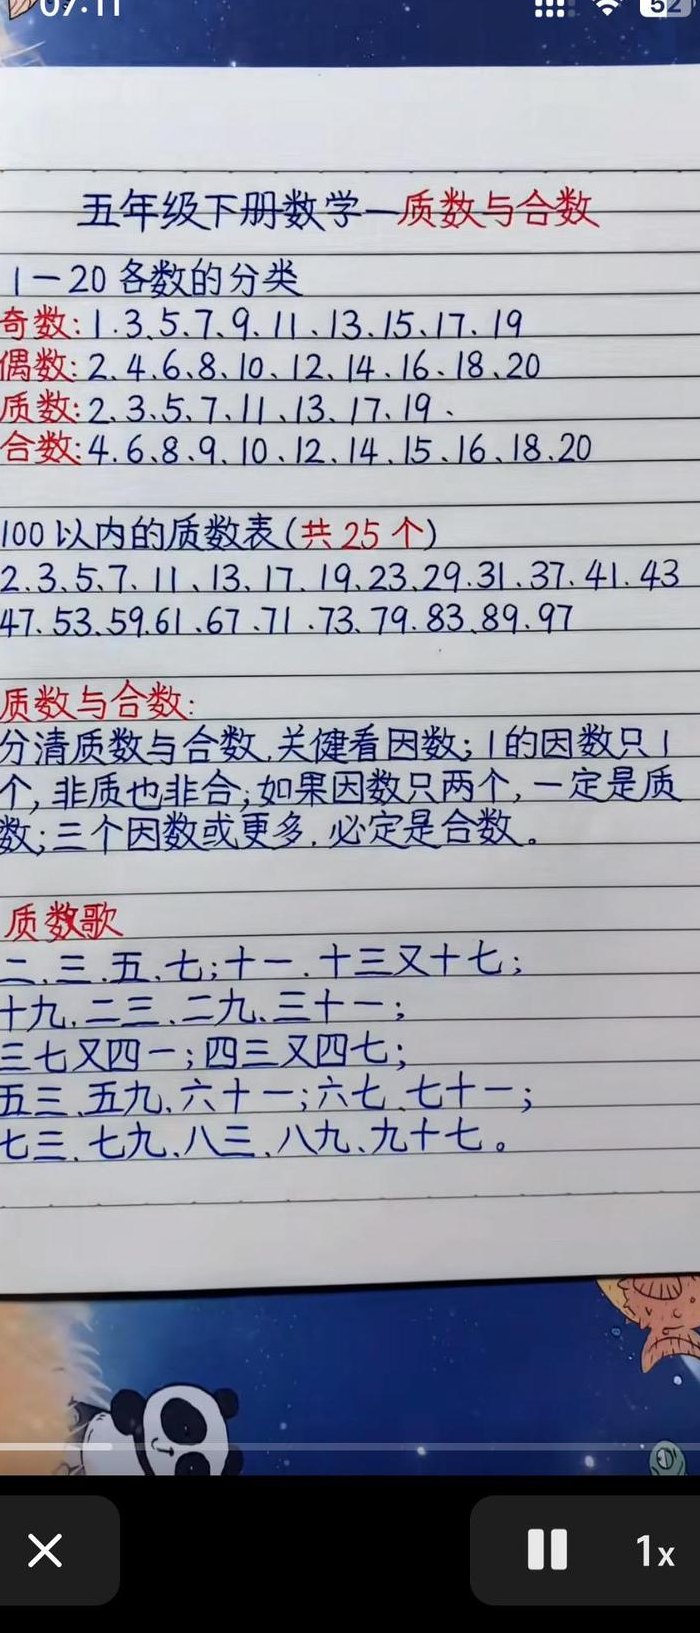 07:11
52
五年级下册数学—质数与合数
1—20各数的分类
奇数:1.3、5、7、9、11、13、15、17、19
偶数:2、4、6、8、10、12、14、16、18、20
质数:2、3、5、7、11、13、17、19、
合数:4、6、8、9、10、12、14、15、16、18、20
100以内的质数表(共25个)
2、3、5、7、11、13、17、19、23、29、31、37、41、43
47、53、59、61、67、71、73、79、83、89、97
质数与合数:
分清质数与合数,关健看因数;1的因数只1
个,非质也非合;如果因数只两个,一定是质
数;三个因数或更多,必定是合数。
质数歌
二、三、五、七;十一、十三又十七;
十九、二三、二九、三十一;
三七又四一;四三又四七;
五三、五九、六十一;六七、七十一;
七三、七九、八三、八九、九十七。
1x